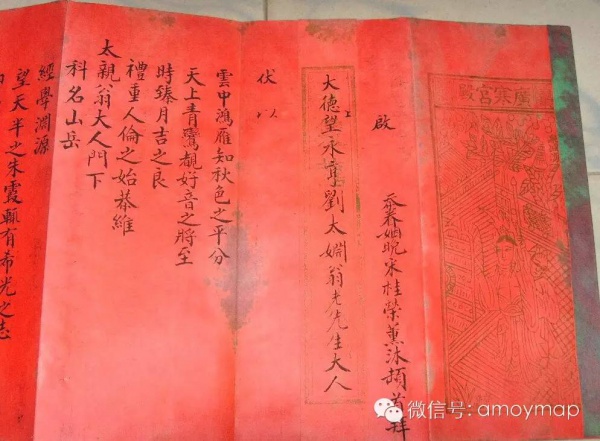 廣寒宮殿
忝眷姻晚宋桂榮薰沐頓首拜
啟
大德望永劉太姻翁老先生大人
伏以
雲中鴻雁知秋色之平分
天上青鸞覩好音之將至
時臻月吉之良
禮重人倫之始恭維
太親翁大人門下
科名山岳
經學淵源
望天半之朱霞顒有希光之志
微信号: amoymap